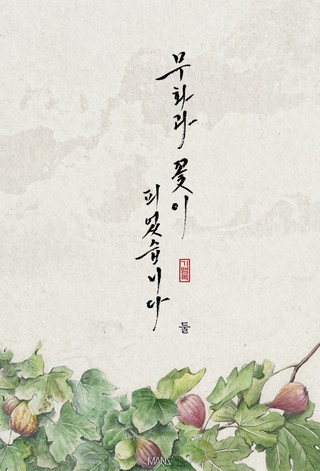 무화과 꽃이
피었습니다
둘
MANS